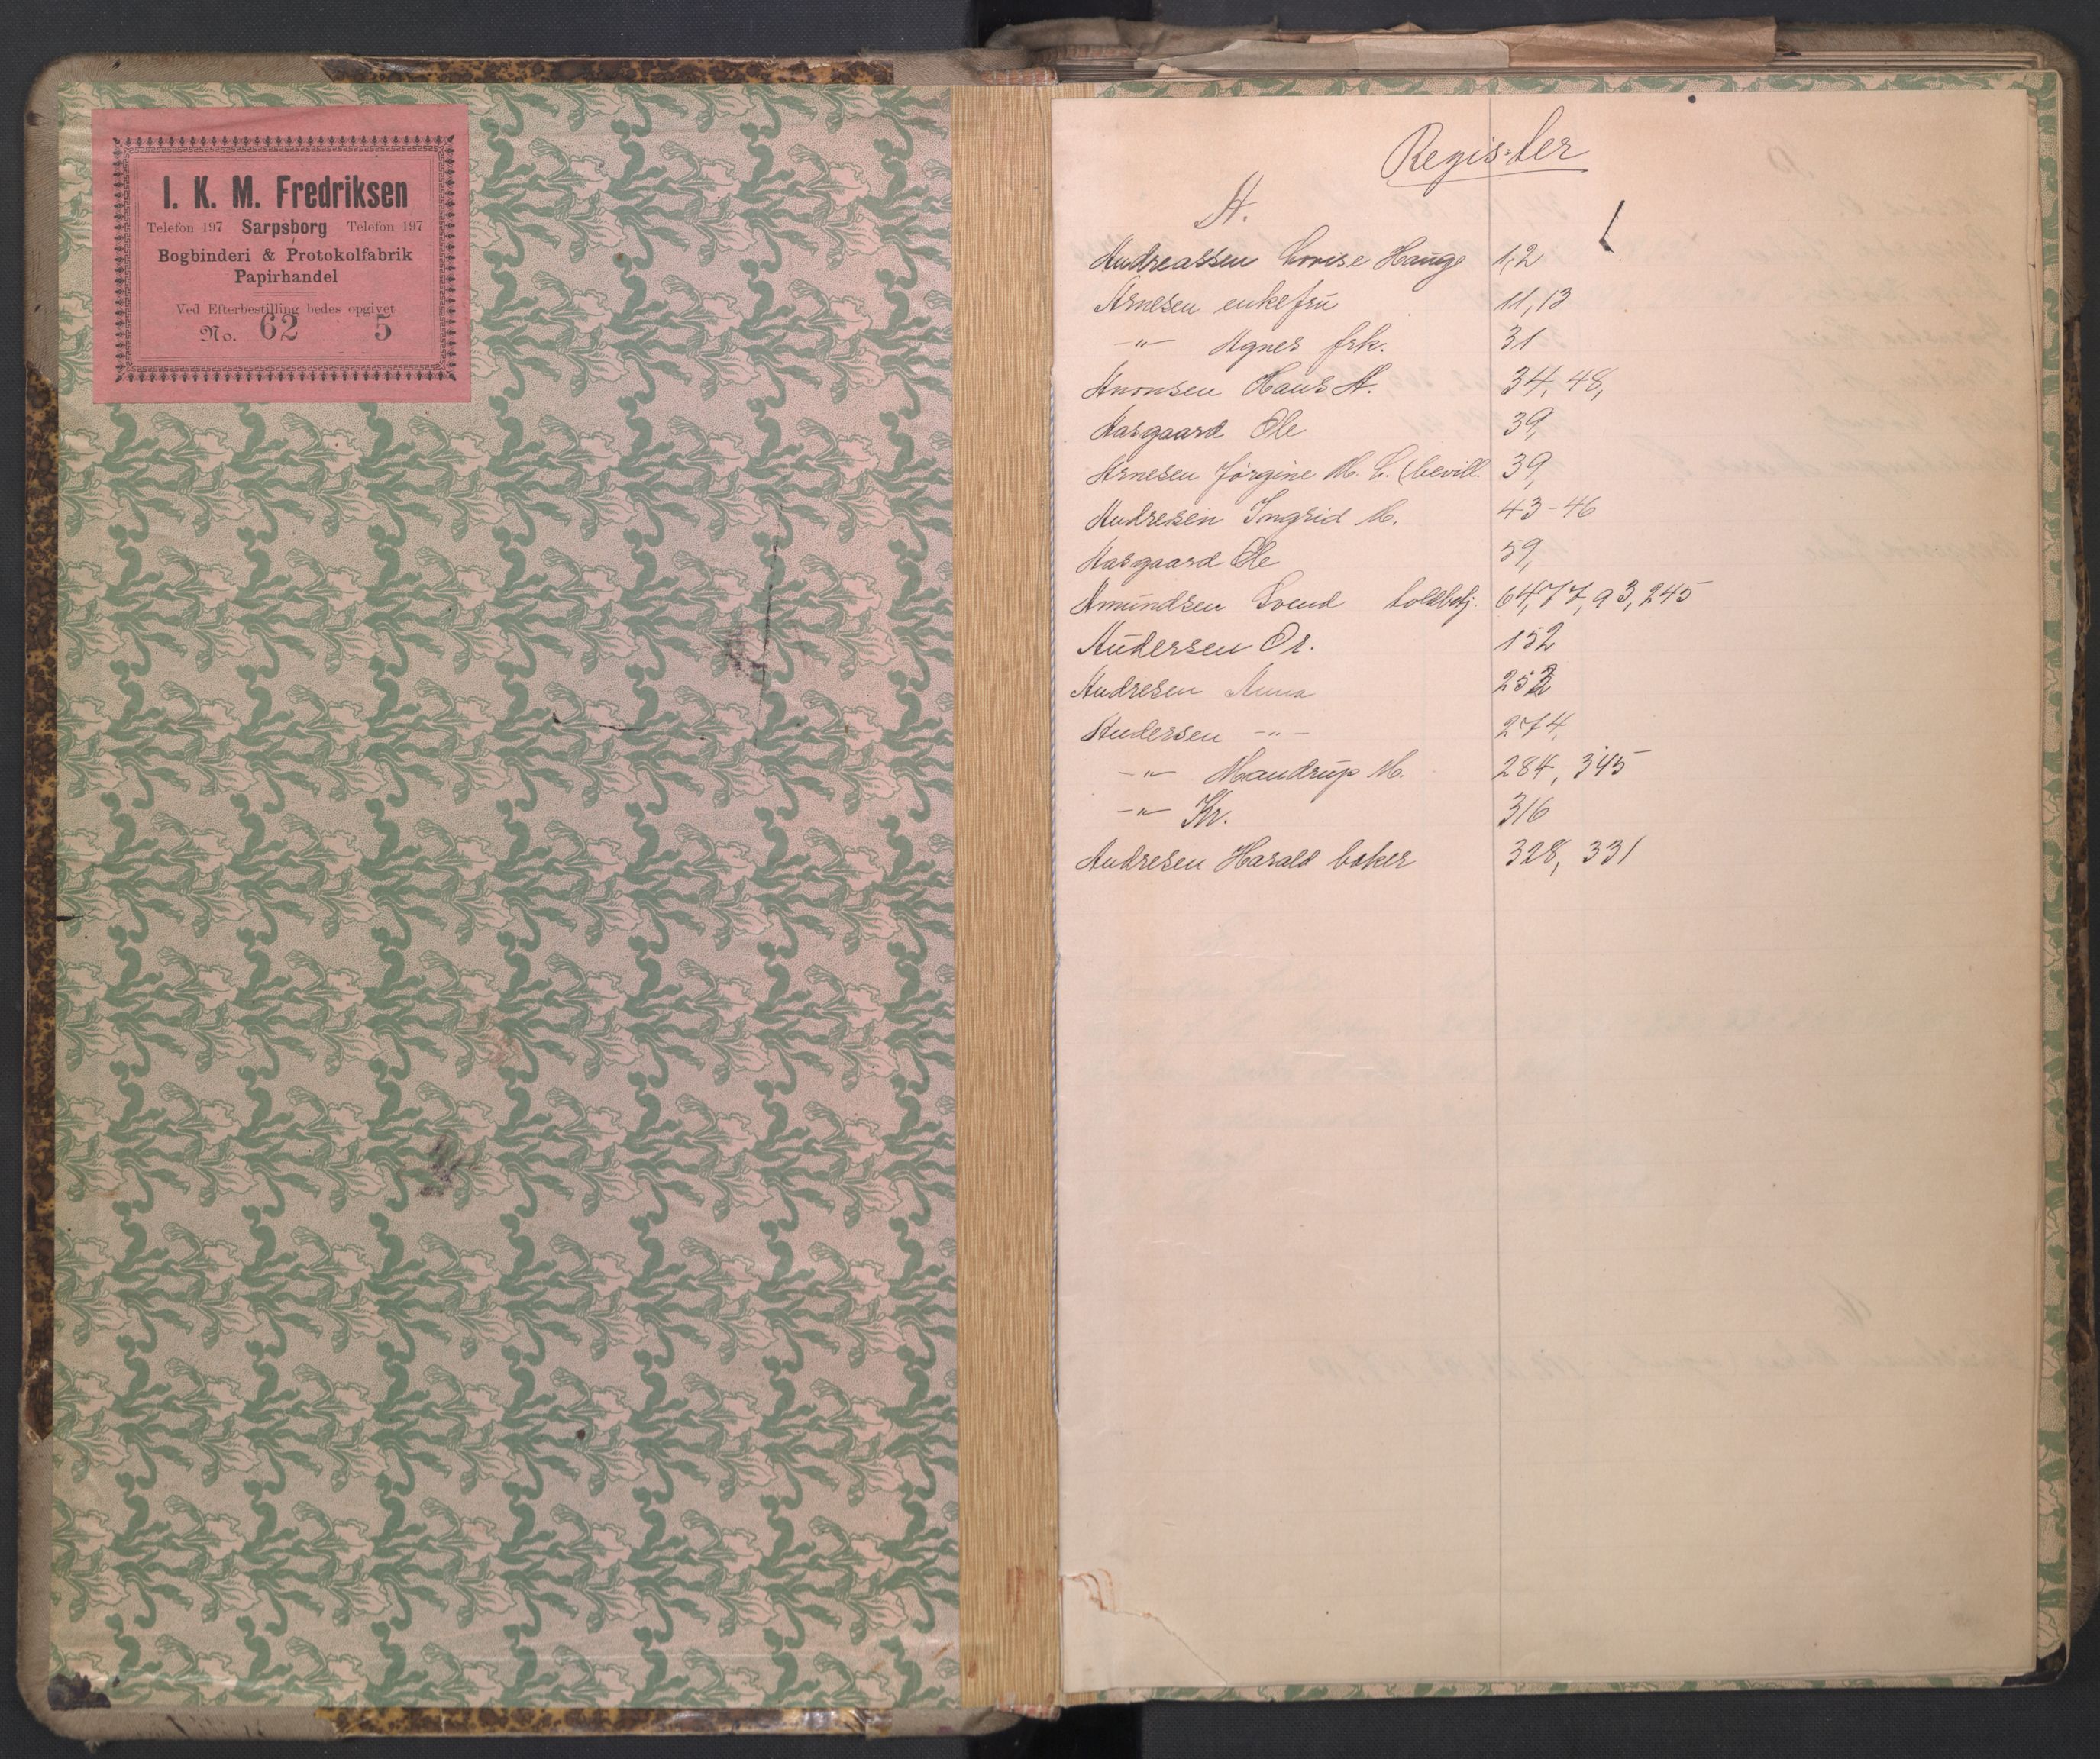 I. K. M. Fredriksen
Telefon 197 Sarpsborg Telefon 197
Bogbinderi & Protokolfabrik
Papirhandel
Ved Efterbestilling bedes opgivet
No. 62 5
Register
A.
Andreassen Lovise Hauge 1,2
Arnesen enkefrü 11,13
-"- Agnes frk. 31
Aronsen Hans A. 34, 48,
Aasgaard Ole 39,
Arnesen Jørgine M. C. (bevill. 39,
Andresen Ingrid M. 43-46
Aasgaard Ole 59,
Amündsen Svend toldbetj. 64,77,93,245
Andersen Or. 152
Andresen Anna 252
Andersen -"- 274,
-"- Mandrüp M. 284, 345
-"- Kr. 316
Andresen Harald baker 328, 331